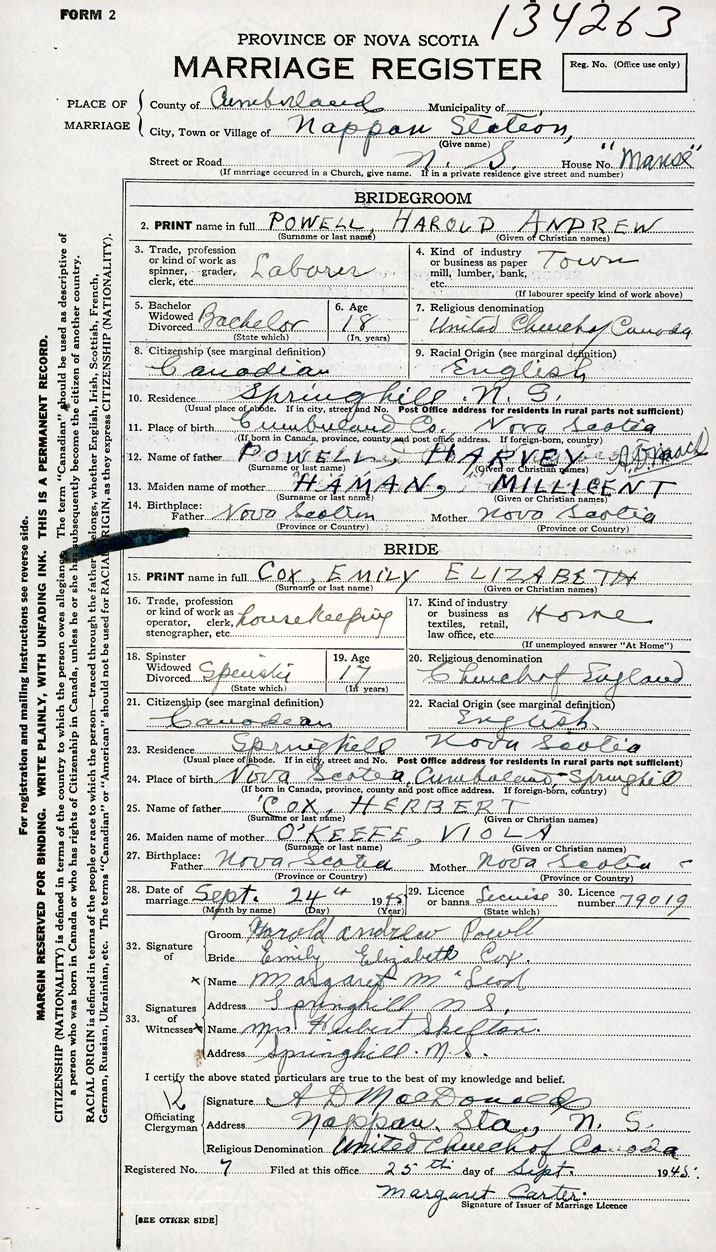 FORM 2
134263
PROVINCE OF NOVA SCOTIA
MARRIAGE REGISTER
Reg. No. (Office use only)
PLACE OF MARRIAGE
County of Cumberland Municipality of
City, Town or Village of Nappan Station,
(Give name)
Street or Road N. S. House No. "Manse"
(If marriage occurred in a Church, give name. If in a private residence give street and number)
BRIDEGROOM
2. PRINT name in full POWELL, HAROLD ANDREW
(Surname or last name) (Given or Christian names)
3. Trade, profession or kind of work as spinner, grader, clerk, etc. Laborer
4. Kind of industry or business as paper mill, lumber, bank, etc. Town
(If labourer specify kind of work above)
5. Bachelor Widowed Divorced Bachelor
(State which)
6. Age 18
(In years)
7. Religious denomination
United Church of Canada
8. Citizenship (see marginal definition)
Canadian
9. Racial Origin (see marginal definition)
English
10. Residence Springhill N. S.
(Usual place of abode. If in city, street and No. Post Office address for residents in rural parts not sufficient)
11. Place of birth Cumberland Co., Nova Scotia
(If born in Canada, province, county and post office address. If foreign-born, country)
12. Name of father POWELL, HARVEY
(Surname or last name) (Given or Christian names)
13. Maiden name of mother HAMAN, MILLICENT
(Surname or last name) (Given or Christian names)
14. Birthplace: Father Nova Scotia Mother Nova Scotia
(Province or Country) (Province or Country)
BRIDE
15. PRINT name in full COX, EMILY ELIZABETH
(Surname or last name) (Given or Christian names)
16. Trade, profession or kind of work as operator, clerk, stenographer, etc. housekeeping
17. Kind of industry or business as textiles, retail, law office, etc. Home
(If unemployed answer "At Home")
18. Spinster Widowed Divorced
(State which)
19. Age 17
(In years)
20. Religious denomination
Church of England
21. Citizenship (see marginal definition)
Canadian
22. Racial Origin (see marginal definition)
English
23. Residence Springhill Nova Scotia
(Usual place of abode. If in city, street and No. Post Office address for residents in rural parts not sufficient)
24. Place of birth Nova Scotia, Cumberland - Springhill
(If born in Canada, province, county and post office address. If foreign-born, country)
25. Name of father COX, HERBERT
(Surname or last name) (Given or Christian names)
26. Maiden name of mother O'KEEFE, VIOLA
(Surname or last name) (Given or Christian names)
27. Birthplace: Father Nova Scotia Mother Nova Scotia
(Province or Country) (Province or Country)
28. Date of marriage Sept. 24th 1945
(Month by name) (Day) (Year)
29. Licence or banns
(State which)
30. Licence number 79019
32. Signature of
Groom Harold Andrew Powell
Bride Emily Elizabeth Cox.
33. Signatures of Witnesses
x Name Margaret McLeod
Address Springhill N S.
x Name Mrs Herbert Skelton.
Address Springhill. N. S.
I certify the above stated particulars are true to the best of my knowledge and belief.
Officiating Clergyman
Signature A D MacDonald
Address Nappan, Sta., N. S.
Religious Denomination United Church of Canada
Registered No. 7 Filed at this office 25th day of Sept. 1945.
Margaret Carter.
Signature of Issuer of Marriage Licence
[SEE OTHER SIDE]
For registration and mailing instructions see reverse side.
MARGIN RESERVED FOR BINDING. WRITE PLAINLY, WITH UNFADING INK. THIS IS A PERMANENT RECORD.
CITIZENSHIP (NATIONALITY) is defined in terms of the country to which the person owes allegiance. The term "Canadian" should be used as descriptive of
a person who was born in Canada or who has rights of Citizenship in Canada, unless he or she has subsequently become the citizen of another country.
RACIAL ORIGIN is defined in terms of the people or race to which the person—traced through the father—belongs, whether English, Irish, Scottish, French,
German, Russian, Ukrainian, etc. The terms "Canadian" or "American" should not be used for RACIAL ORIGIN, as they express CITIZENSHIP (NATIONALITY).